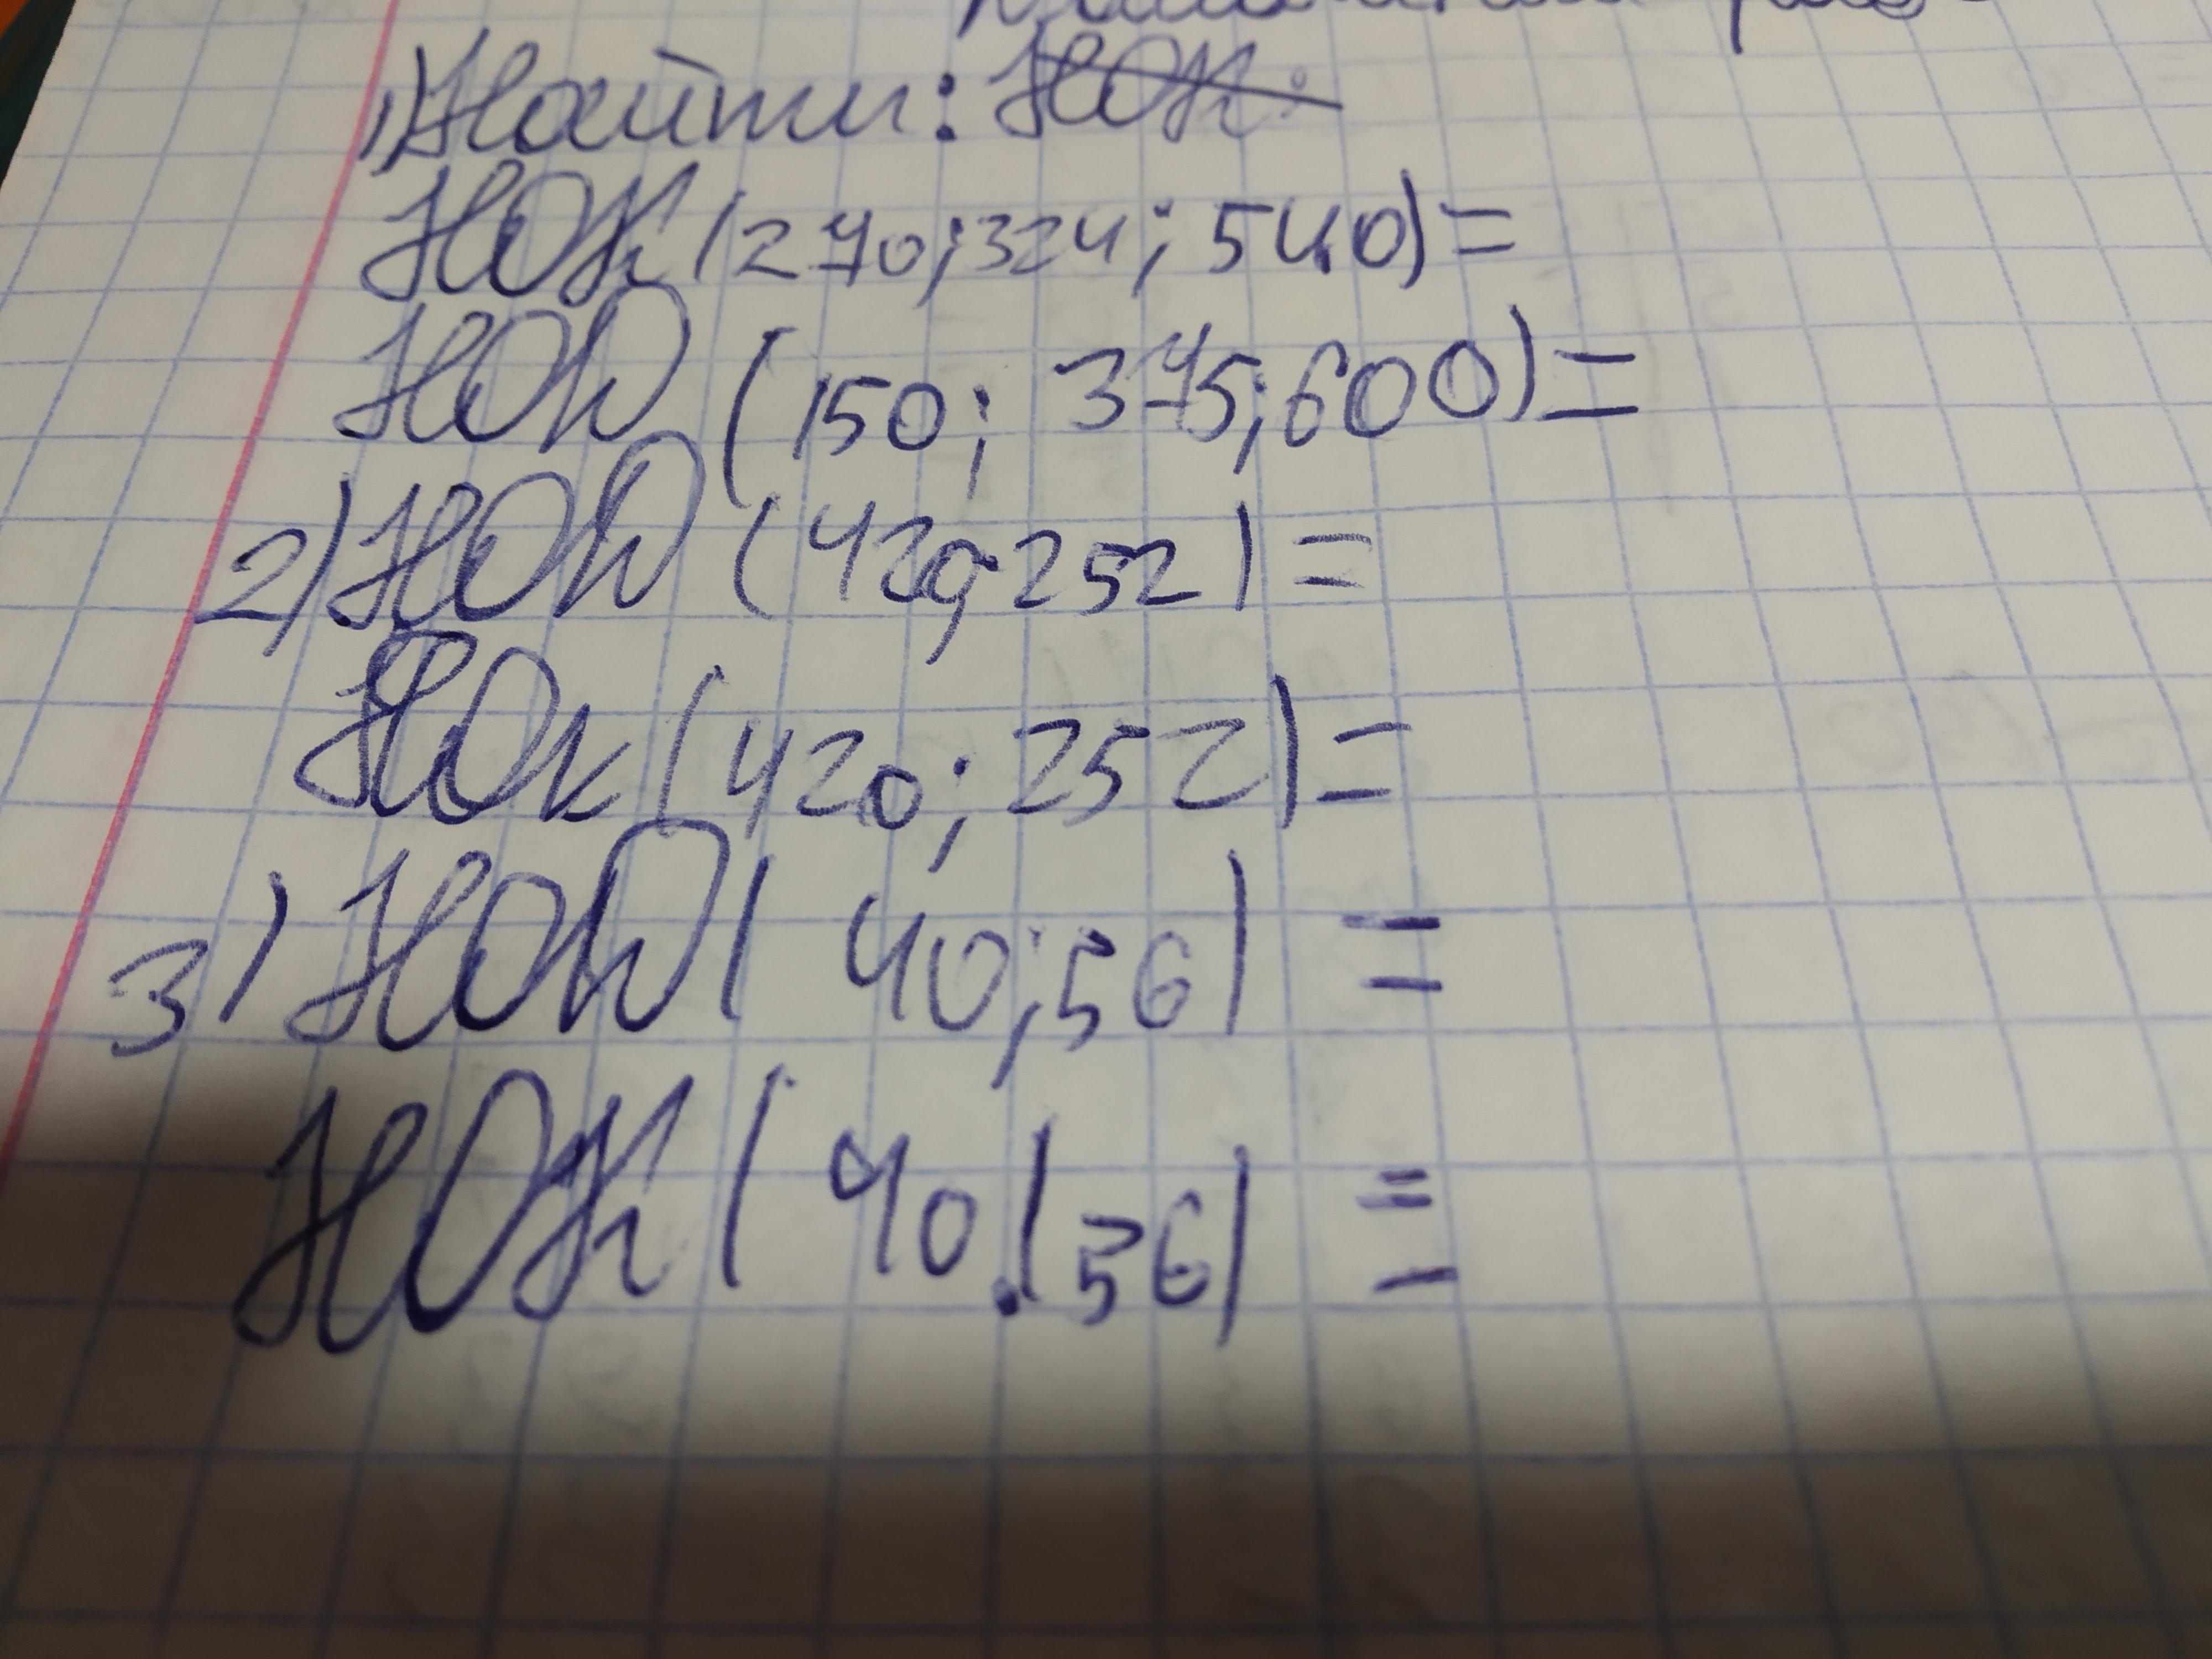 1) Найти: НОК:
НОК (270; 324; 540) =
НОД (150; 375; 600) =
2) НОД (420; 252) =
НОК (420; 252) =
3) НОД (40; 56) =
НОК (40; 56) =